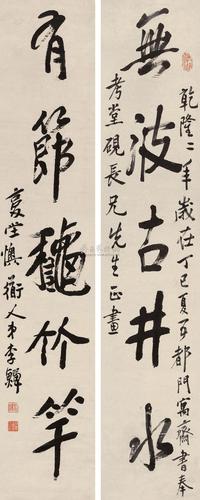 乾隆二年歲在丁巳夏五都門寓齋書奉
無波古井水
考堂硯長兄先生正畫
有節龝竹竿
复堂懊衜人弟李鱓